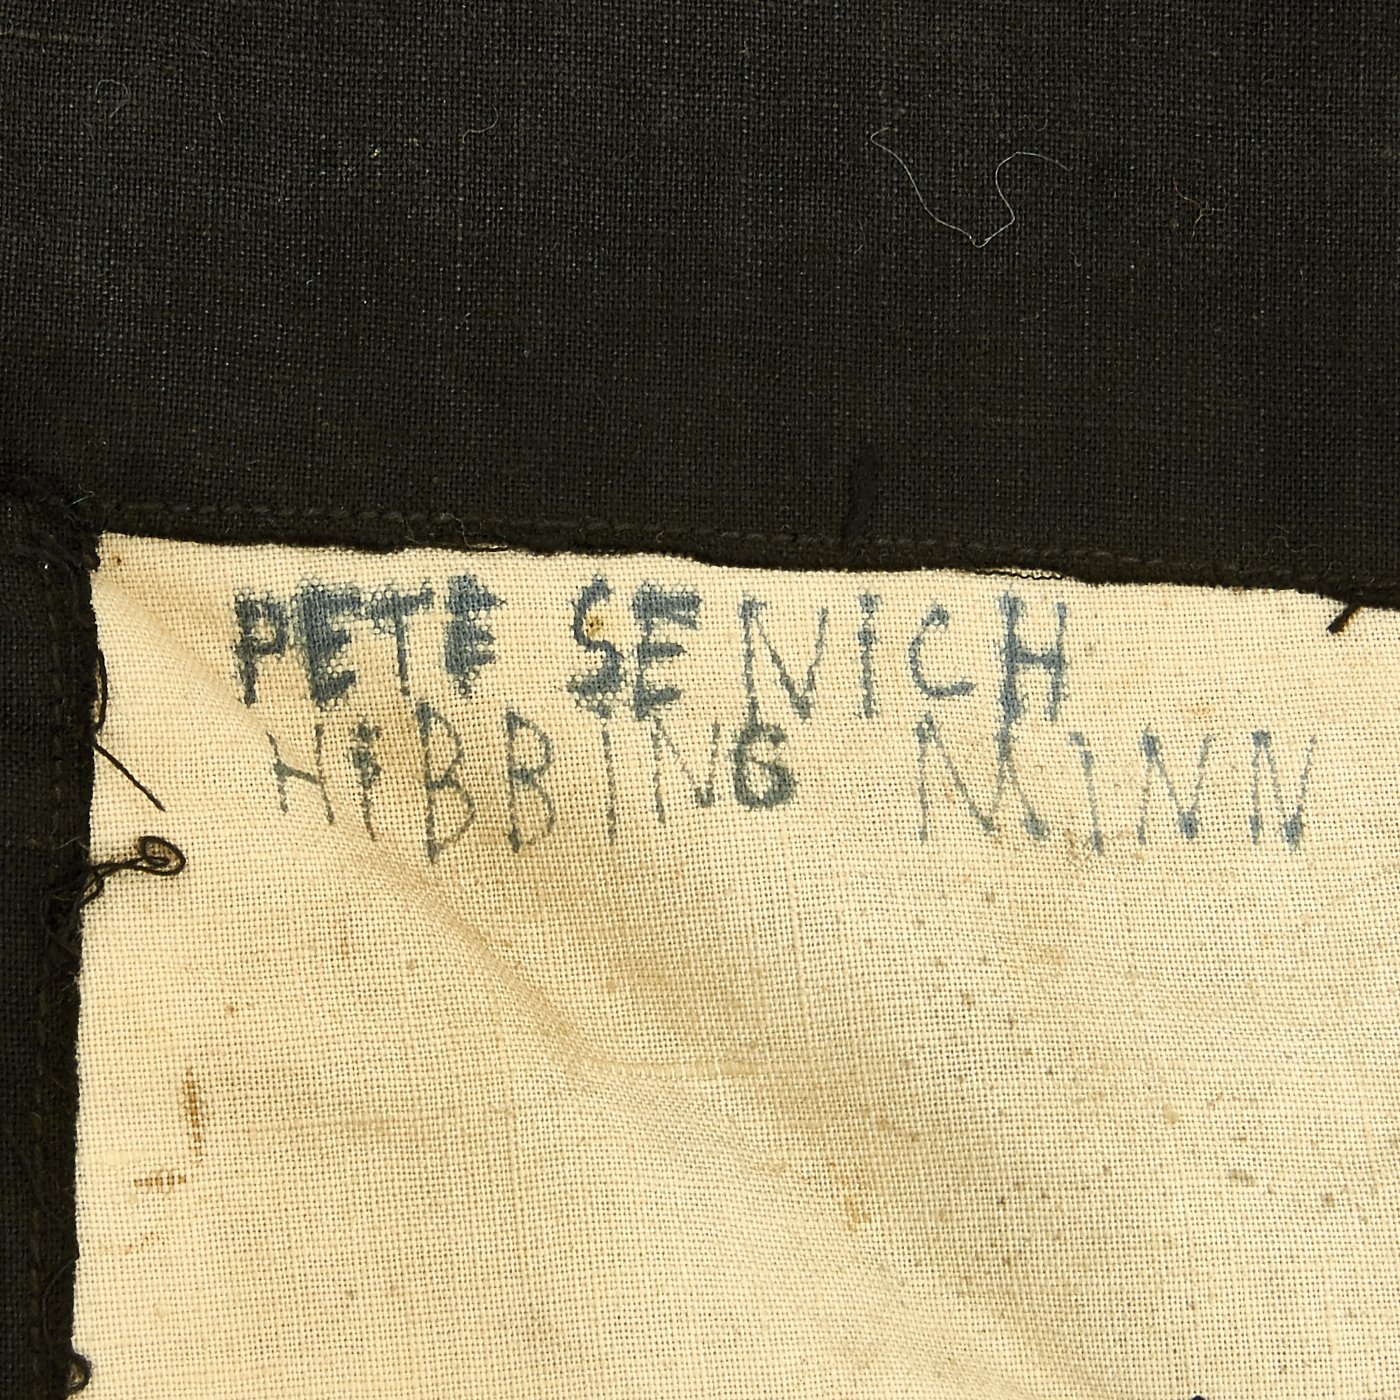 PETE SENICH
HIBBING MINN